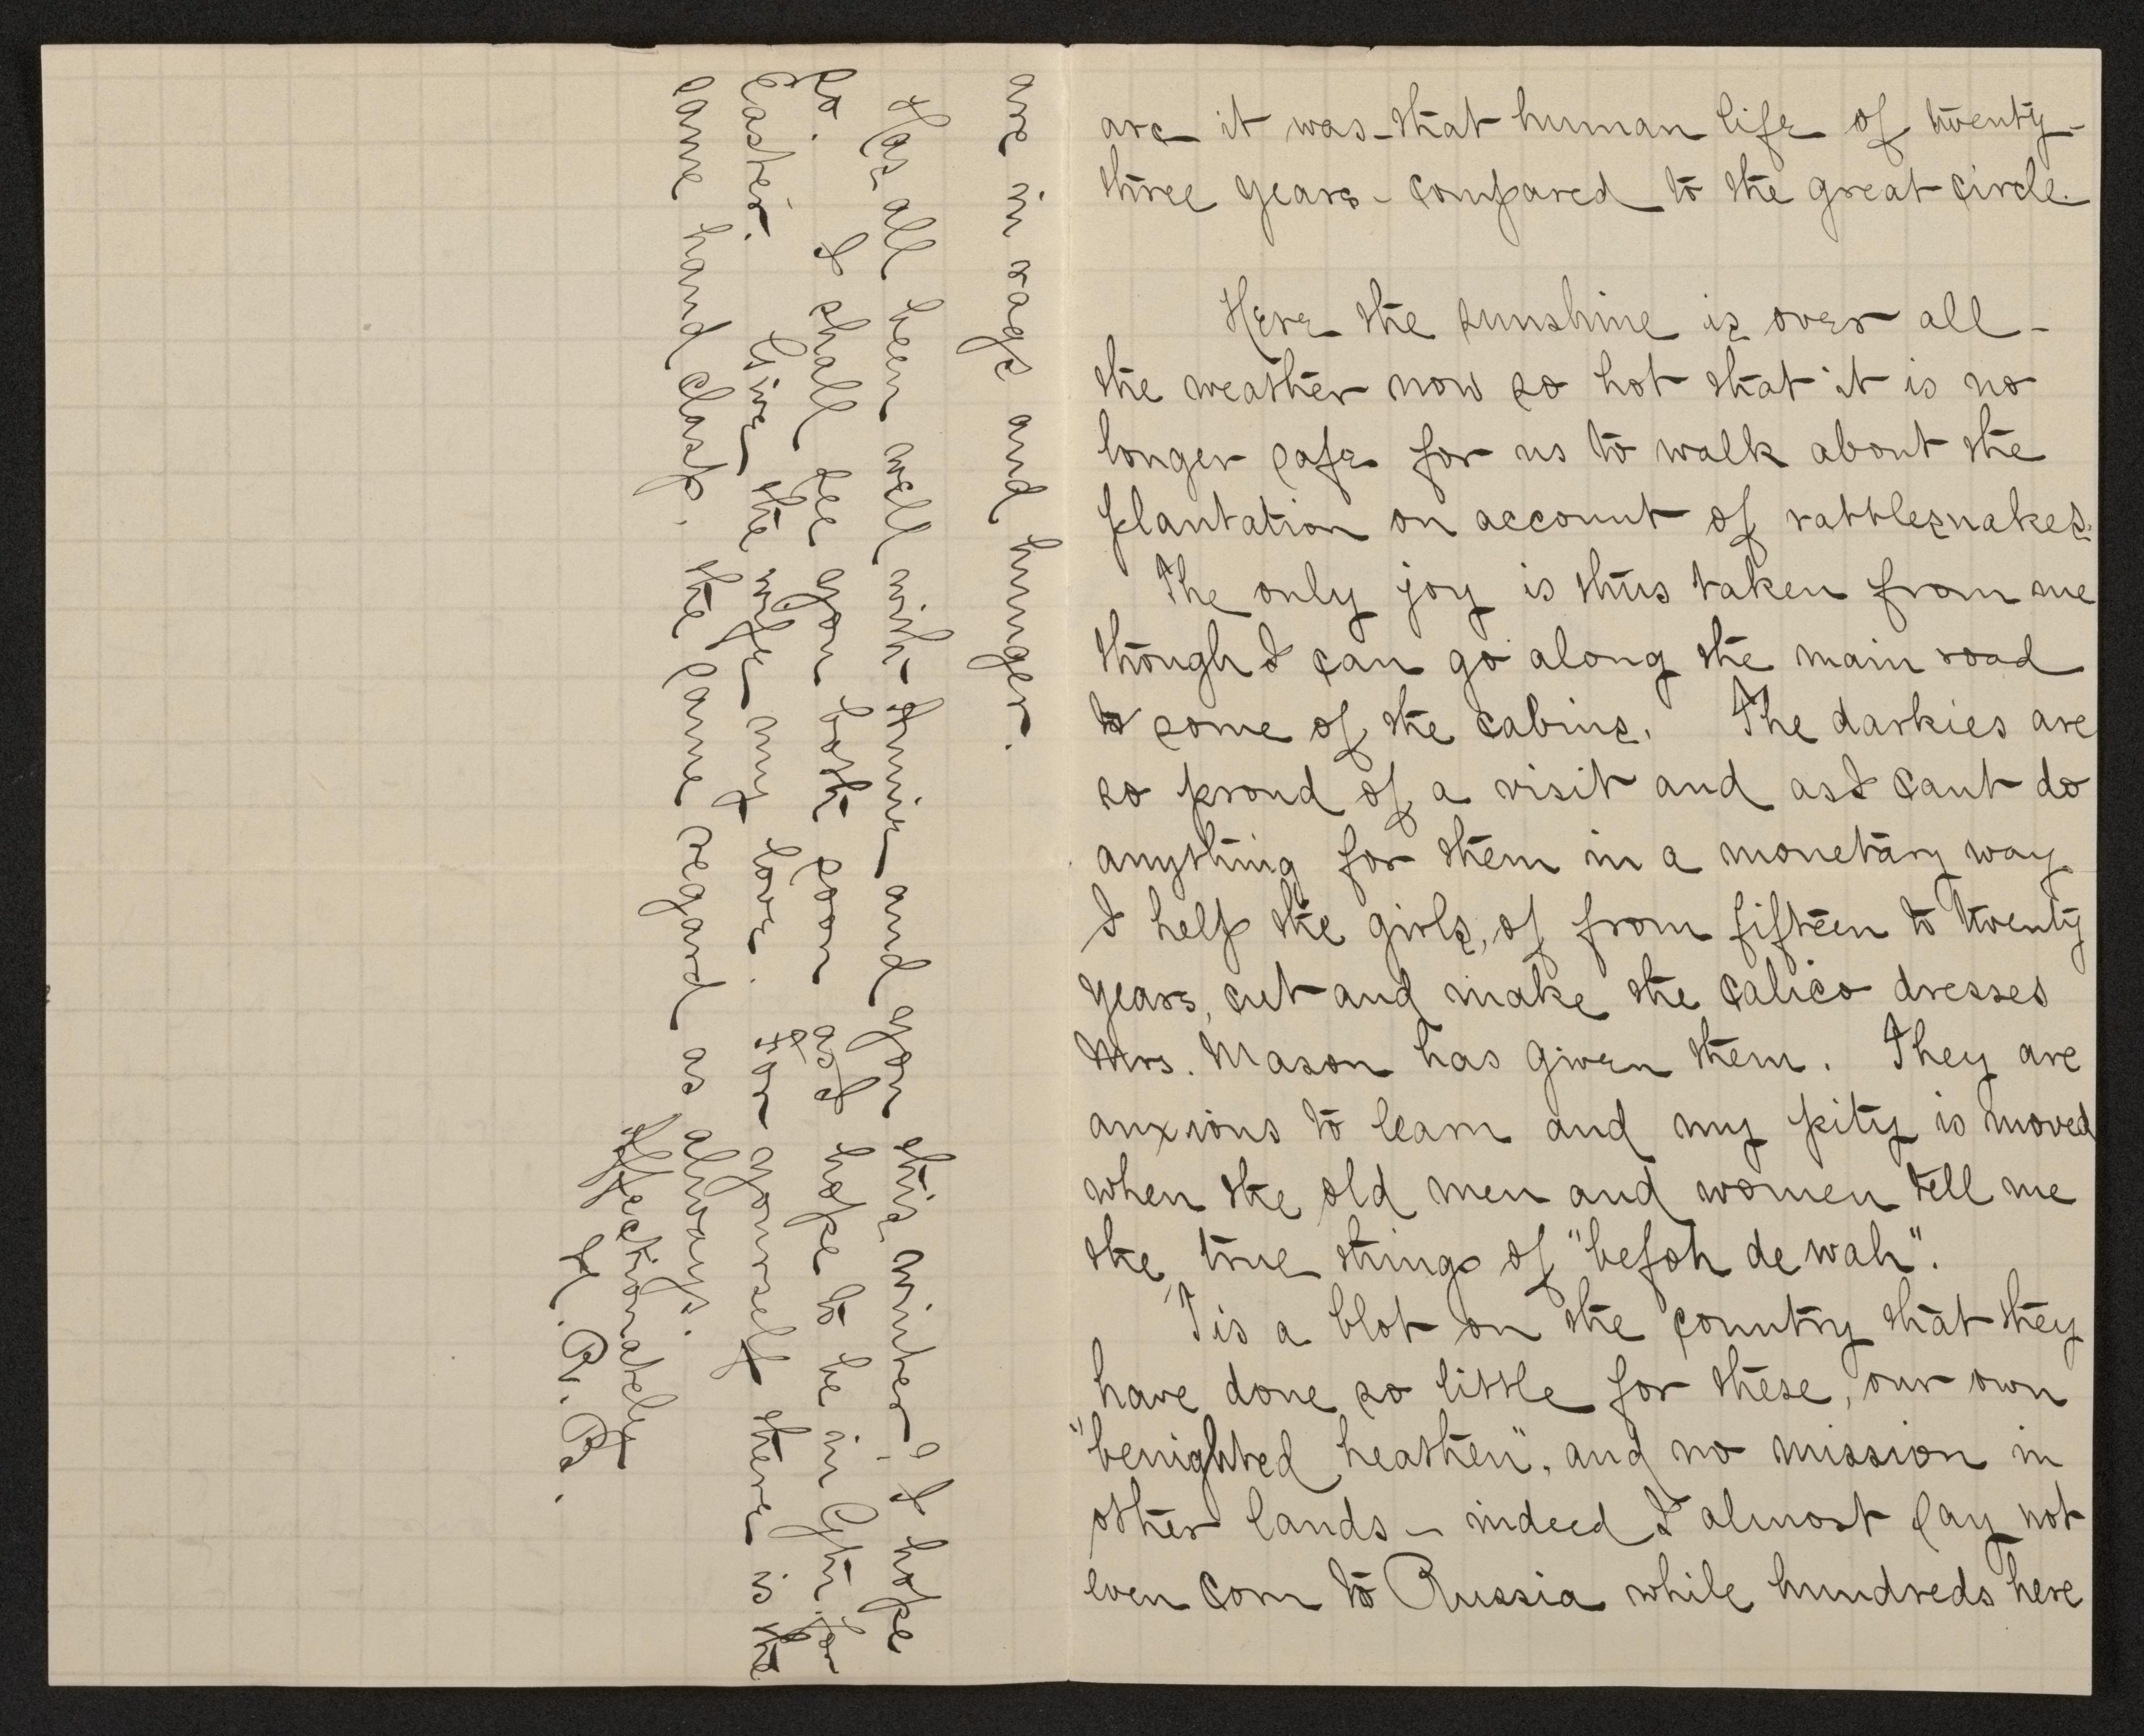 arc it was - that human life of twenty-
three years - compared to the great circle.
Here the sunshine is over all -
the weather now so hot that it is no
longer safe for us to walk about the
plantation on account of rattlesnakes.
The only joy is thus taken from me
though I can go along the main road
to some of the cabins. The darkies are
so proud of a visit and as I cant do
anything for them in a monetary way
I help the girls, of from fifteen to twenty
years, cut and make the calico dresses
Mrs. Mason has given them. They are
anxious to learn and my pity is moved
when the old men and women tell me
the true things of "befoh de wah".
'Tis a blot on the country that they
have done so little for these, our own
"benighted heathen", and no mission in
other lands - indeed I almost say not
even corn to Russia while hundreds here
are in rags and hunger.
Has all been well with and you this winter? I hope
so. I shall see you both soon as I hope to be in for
Easter. Give the wife my love. For yourself there is the
same hand clasp, the same regard as always.
Affectionately
R. B.